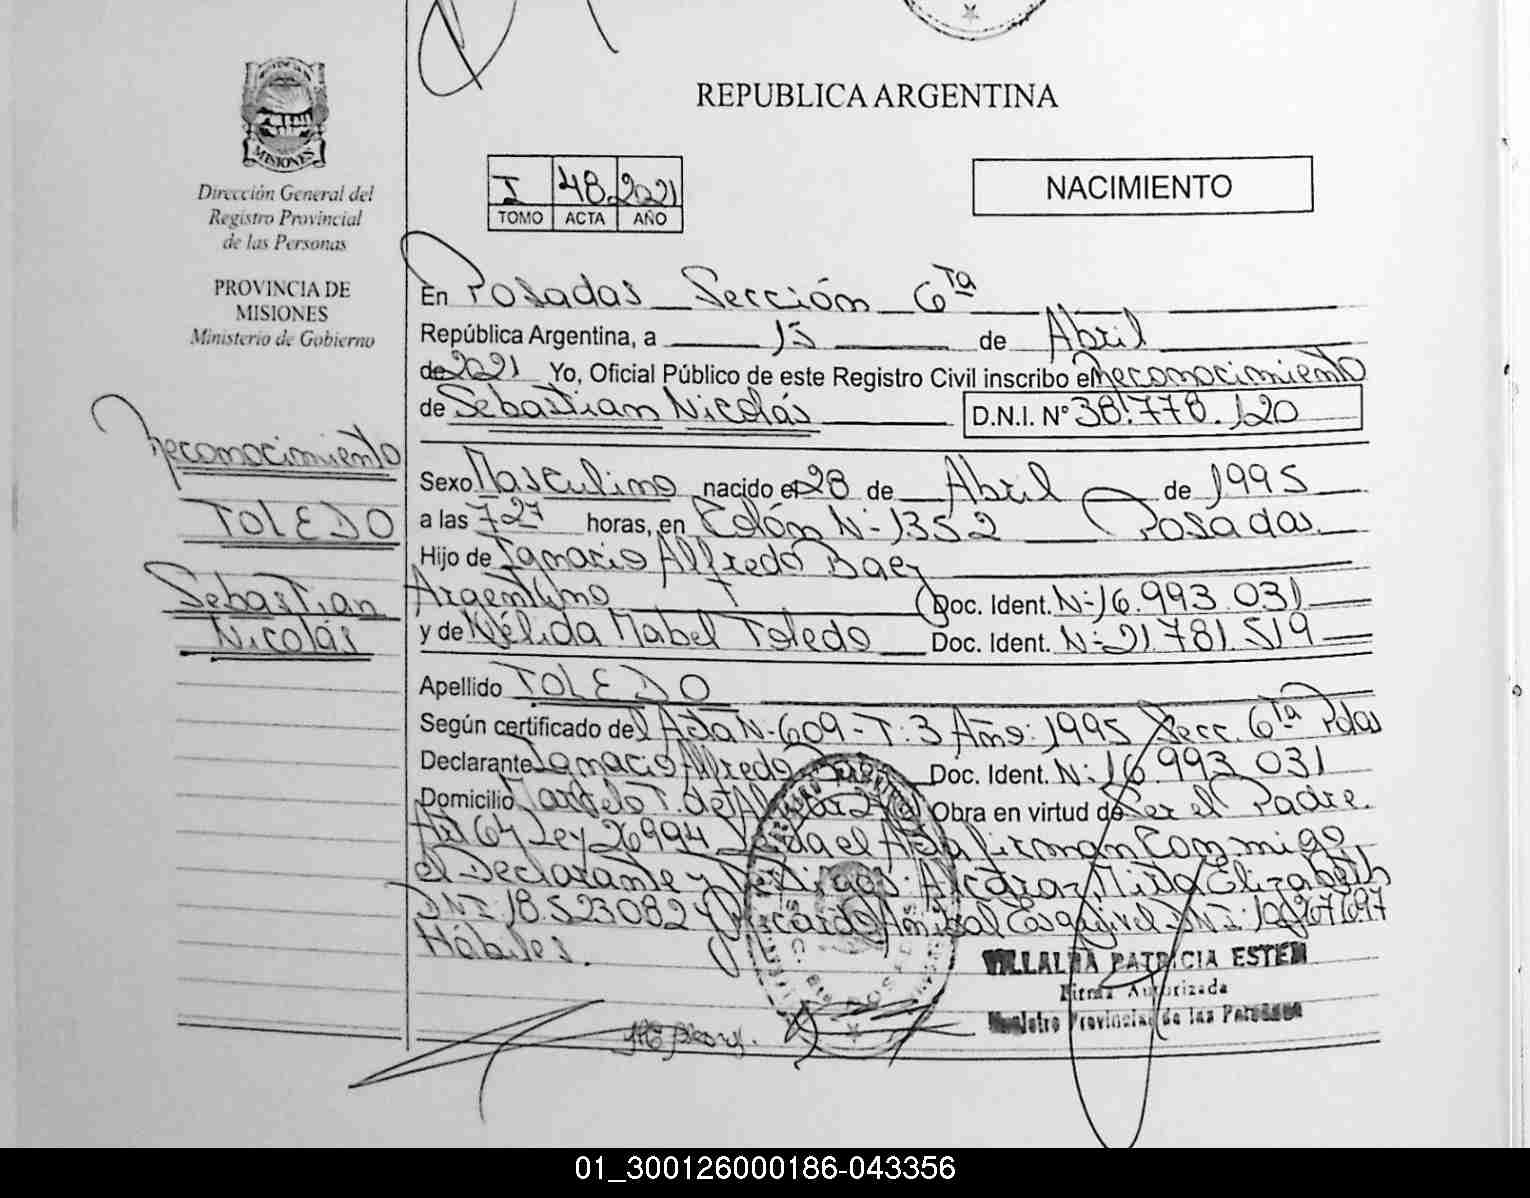 REPUBLICA ARGENTINA
MISIONES
Dirección General del
Registro Provincial
de las Personas
PROVINCIA DE
MISIONES
Ministerio de Gobierno
I 48 2021
TOMO ACTA AÑO
NACIMIENTO
En Posadas Sección 6ta
República Argentina, a 15 de Abril
de 2021 Yo, Oficial Público de este Registro Civil inscribo el Reconocimiento
de Sebastian Nicolás D.N.I. N° 38.778.120
Reconocimiento
TOLEDO
Sebastian
Nicolás
Sexo Masculino nacido el 28 de Abril de 1995
a las 7 27 horas, en Colón N-1352 Posadas
Hijo de Ignacio Alfredo Baez
Argentino Doc. Ident. N-16.993.031
y de Nélida Mabel Toledo Doc. Ident. N-21.781.519
Apellido TOLEDO
Según certificado del Acta N-609-T:3 Año:1995 Secc. 6ta Pdas
Declarante Ignacio Alfredo Doc. Ident. N: 16.993.031
Domicilio Marcelo T. de Obra en virtud de Ser el Padre.
Art 64 Ley 26994 el Acta firman Conmigo
el Declarante y Testigos: Alcaraz Mirta Elizabeth
DNI:18.523.082 y Ricardo Anibal Esquivel DNI:
Hábiles.
VILLALBA PATRICIA ESTER
Firma Autorizada
Registro Provincial de las Personas
01_300126000186-043356